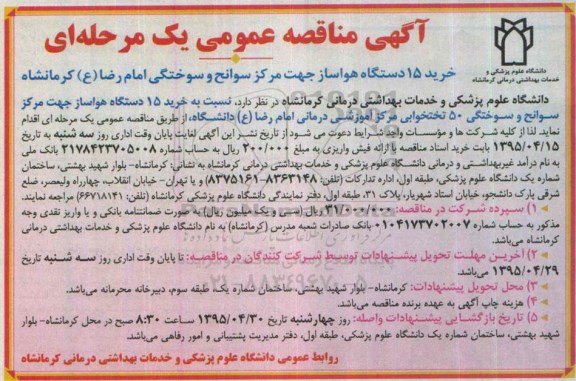 آگهی مناقصه عمومی یک مرحله‌ای
دانشگاه علوم پزشکی و
خدمات بهداشتی درمانی کرمانشاه
خرید ۱۵ دستگاه هواساز جهت مرکز سوانح و سوختگی امام رضا (ع) کرمانشاه
دانشگاه علوم پزشکی و خدمات بهداشتی درمانی کرمانشاه در نظر دارد، نسبت به خرید ۱۵ دستگاه هواساز جهت مرکز
سوانح و سوختگی ۵۰ تختخوابی مرکز آموزشی درمانی امام رضا (ع) دانشگاه، از طریق مناقصه عمومی یک مرحله ای اقدام
نماید. لذا از کلیه شرکت ها و مؤسسات واجد شرایط دعوت می شود از تاریخ نشر این آگهی لغایت پایان وقت اداری روز سه شنبه به تاریخ
۱۳۹۵/۰۴/۱۵ بابت خرید اسناد مناقصه با ارائه فیش واریزی به مبلغ ۲۰۰/۰۰۰ ریال به حساب شماره ۲۱۷۸۴۲۳۷۰۵۰۰۸ بانک ملی
به نام درآمد غیربهداشتی و درمانی دانشگاه علوم پزشکی و خدمات بهداشتی درمانی کرمانشاه به نشانی: کرمانشاه- بلوار شهید بهشتی، ساختمان
شماره یک دانشگاه علوم پزشکی، طبقه اول، اداره تدارکات (تلفن: ۸۳۶۳۱۴۸-۸۳۷۵۱۶۱) و یا تهران- خیابان انقلاب، چهارراه ولیعصر، ضلع
شرقی پارک دانشجو، خیابان استاد شهریار، پلاک ۳۱، طبقه اول، دفتر نمایندگی دانشگاه علوم پزشکی کرمانشاه (تلفن: ۶۶۷۱۸۱۴۱) مراجعه نمایند.
۱) سپرده شرکت در مناقصه: ۳۱/۰۰۰/۰۰۰ ریال (سی و یک میلیون ریال) به صورت ضمانتنامه بانکی و یا واریز نقدی وجه
مذکور به حساب شماره ۰۱۰۴۱۷۳۷۰۲۰۰۷ بانک صادرات شعبه مدرس (کرمانشاه) به نام دانشگاه علوم پزشکی و خدمات بهداشتی درمانی
کرمانشاه می‌باشد.
۲) آخرین مهلت تحویل پیشنهادات توسط شرکت کنندگان در مناقصه: تا پایان وقت اداری روز سه شنبه تاریخ
۱۳۹۵/۰۴/۲۹ می‌باشد.
۳) محل تحویل پیشنهادات: کرمانشاه- بلوار شهید بهشتی، ساختمان شماره یک، طبقه سوم، دبیرخانه محرمانه می‌باشد.
۴) هزینه چاپ آگهی به عهده برنده مناقصه می‌باشد.
۵) تاریخ بازگشایی پیشنهادات واصله: روز چهارشنبه تاریخ ۱۳۹۵/۰۴/۳۰ ساعت ۸:۳۰ صبح در محل کرمانشاه- بلوار
شهید بهشتی، ساختمان شماره یک دانشگاه علوم پزشکی، طبقه اول، دفتر مدیریت پشتیبانی و امور رفاهی می‌باشد.
روابط عمومی دانشگاه علوم پزشکی و خدمات بهداشتی درمانی کرمانشاه